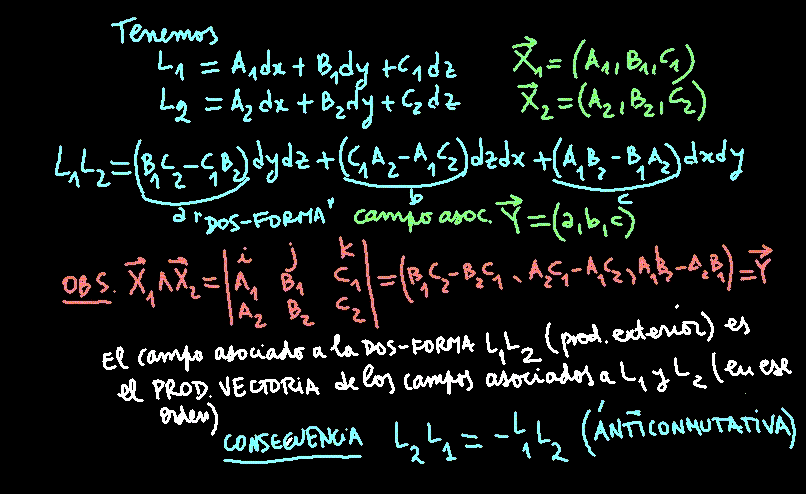 Tenemos
L₁ = A₁dx + B₁dy + C₁dz  X⃗₁ = (A₁, B₁, C₁)
L₂ = A₂dx + B₂dy + C₂dz  X⃗₂ = (A₂, B₂, C₂)
L₁L₂ = (B₁C₂ - C₁B₂)dydz + (C₁A₂ - A₁C₂)dzdx + (A₁B₂ - B₁A₂)dxdy
a b c
"DOS-FORMA" campo asoc. Y⃗ = (a, b, c)
OBS. X⃗₁ ∧ X⃗₂ = | i j k | A₁ B₁ C₁ | A₂ B₂ C₂ | = (B₁C₂ - B₂C₁, A₂C₁ - A₁C₂, A₁B₂ - A₂B₁) = Y⃗
El campo asociado a la DOS-FORMA L₁L₂ (prod. exterior) es
el PROD. VECTORIA de los campos asociados a L₁ y L₂ (en ese
orden)
CONSECUENCIA L₂L₁ = -L₁L₂ (ANTICONMUTATIVA)